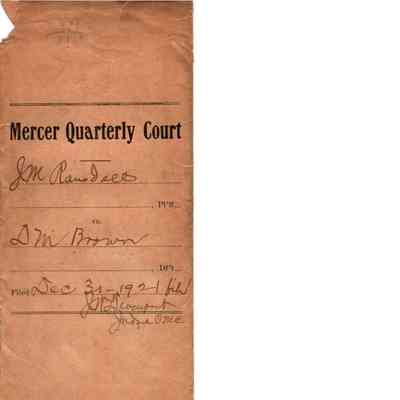 Mercer Quarterly Court
J M Ransdell
, Pltff.
vs.
D M Brown
, Deft.
Filed Dec 31-1921 filed
Judge QMC